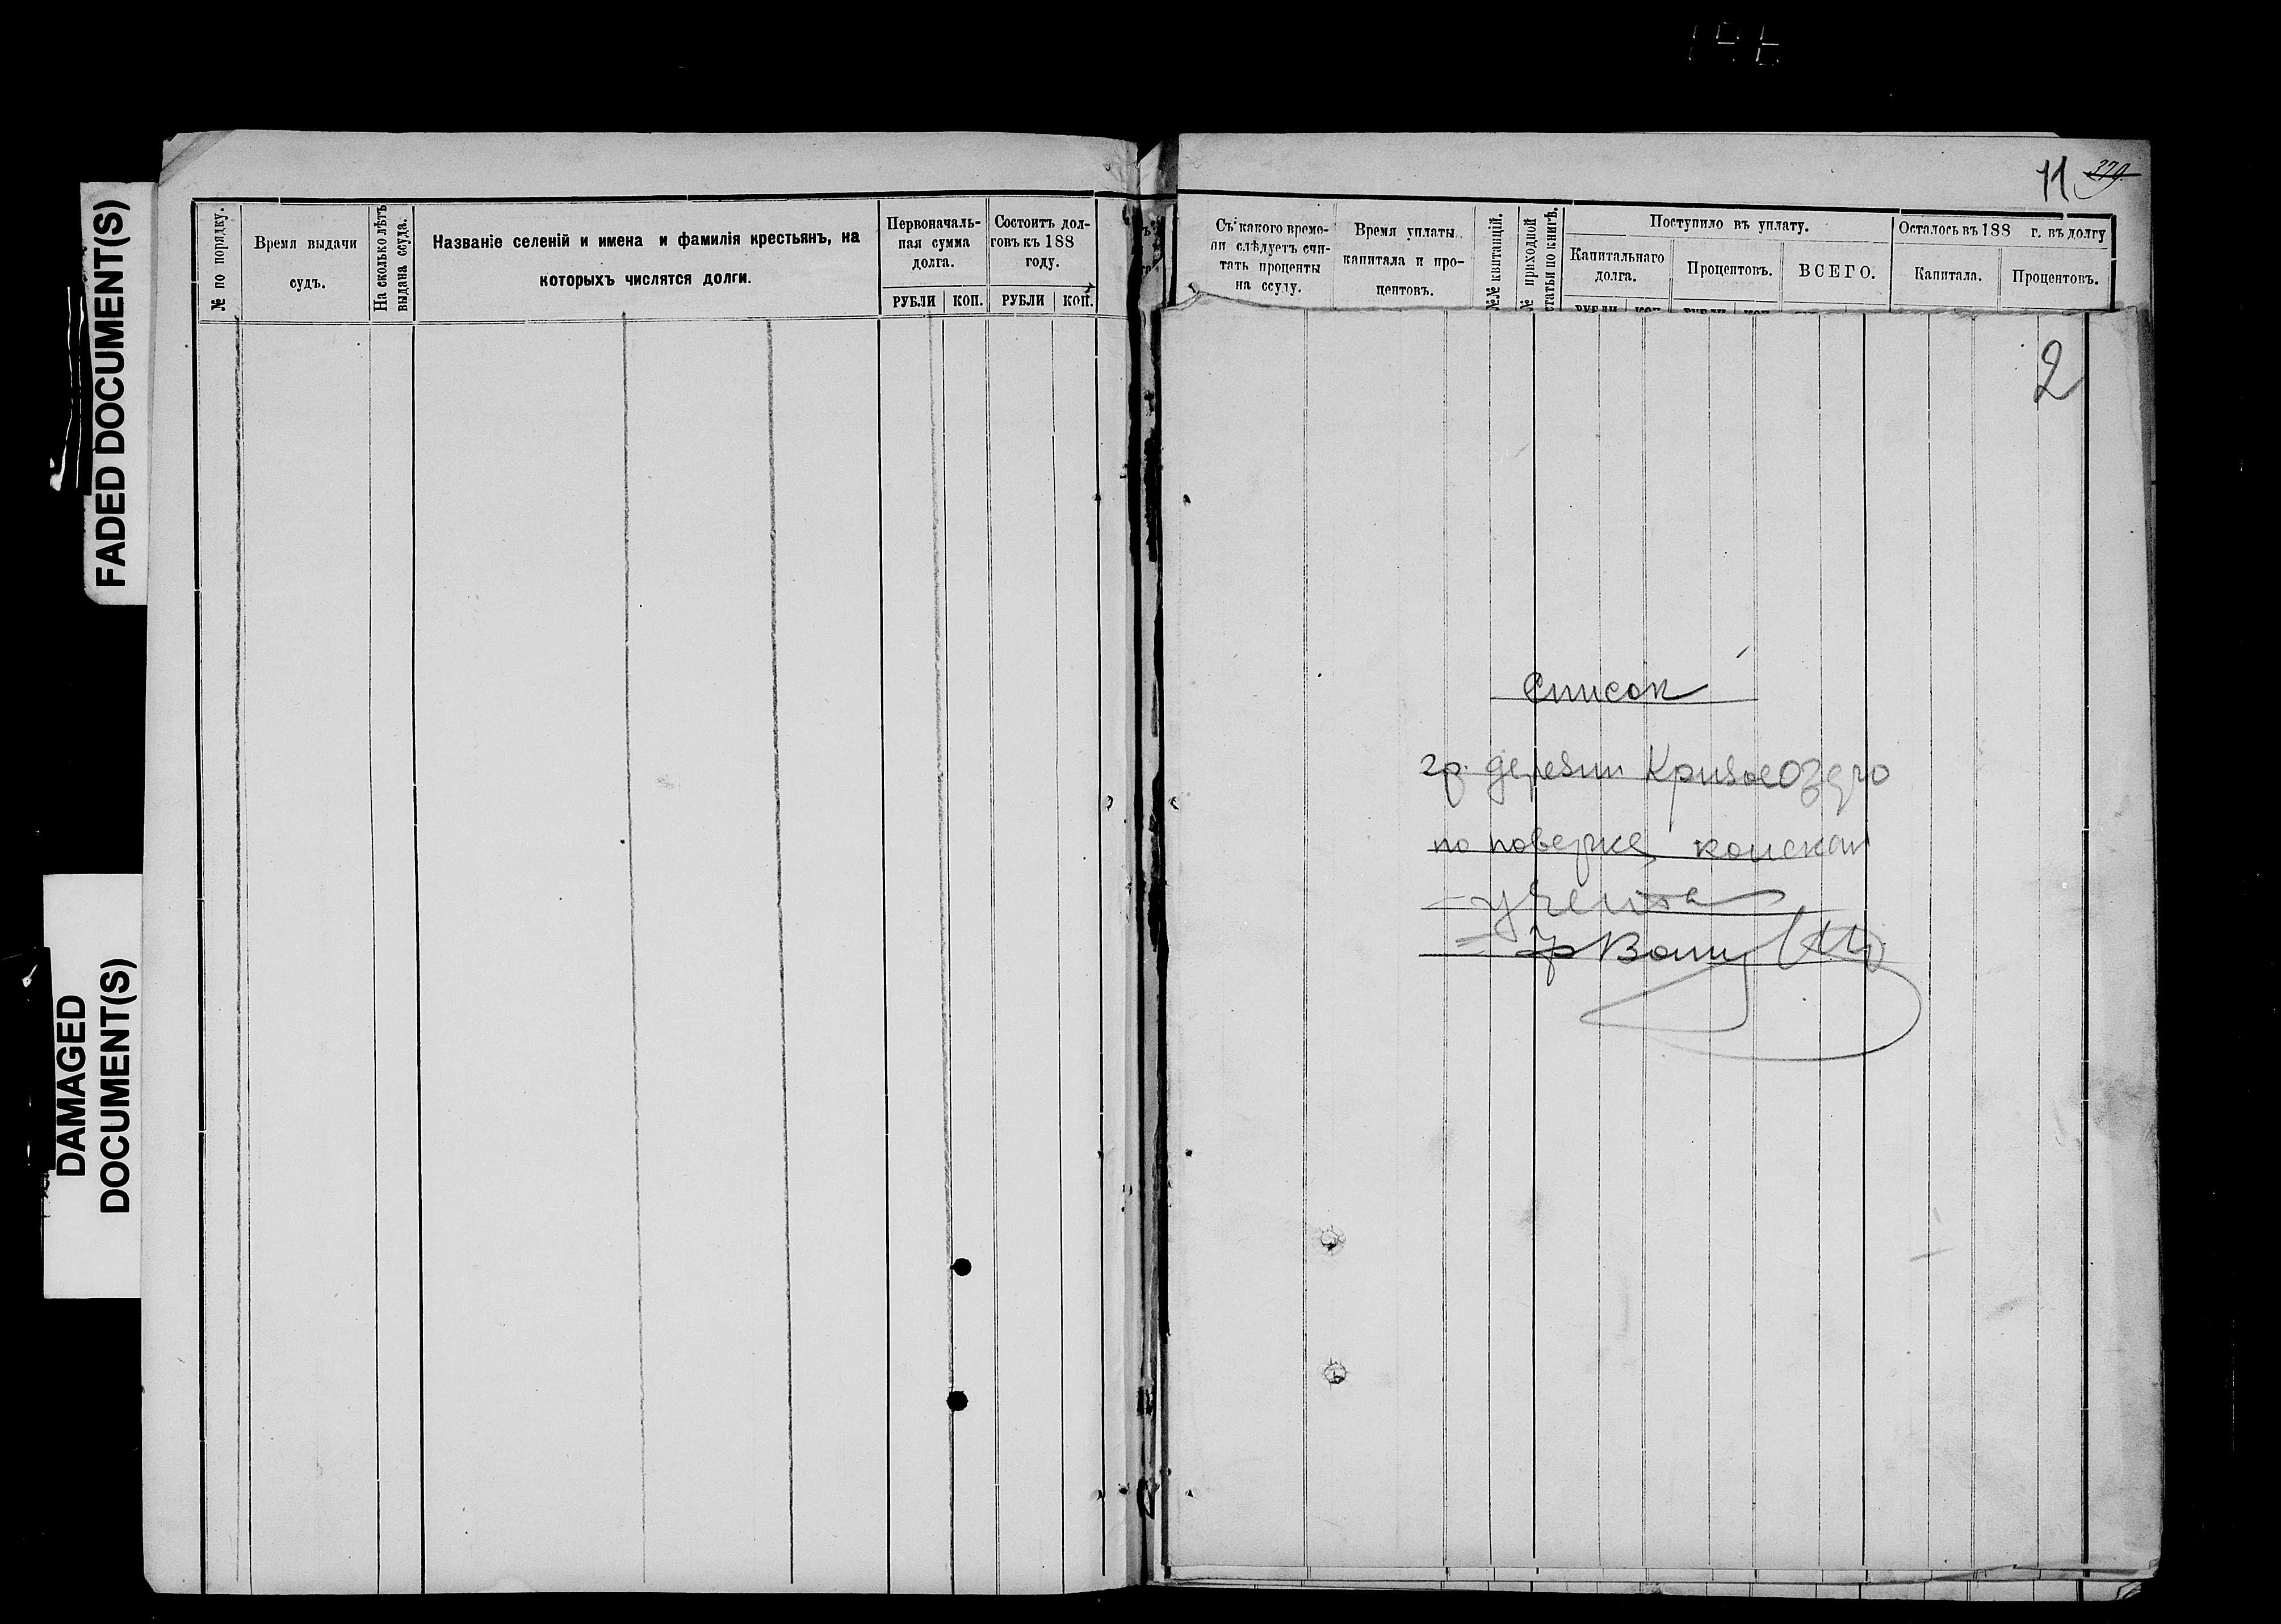 FADED DOCUMENT(S)
DAMAGED
DOCUMENT(S)
№ по порядку.
Время выдачи
судъ.
На сколько лѣтъ
выдана ссуда.
Названіе селеній и имена и фамилія крестьянъ, на
которыхъ числятся долги.
Первоначаль-
ная сумма
долга.
РУБЛИ КОП.
Состоитъ дол-
говъ къ 188
году.
РУБЛИ КОП.
11 379.
Съ какого време-
ни слѣдуетъ счи-
тать проценты
на ссуду.
Время уплаты
капитала и про-
центовъ.
№№ квитанцій.
№ приходной
статьи по книгѣ.
Поступило въ уплату.
Капитальнаго
долга.
Процентовъ.
ВСЕГО.
РУБЛИ КОП. РУБЛИ КОП.
Осталось въ 188 г. въ долгу
Капитала.
Процентовъ.
2
Список
гр. деревни Кривое озеро
по поверке конскаго
учета